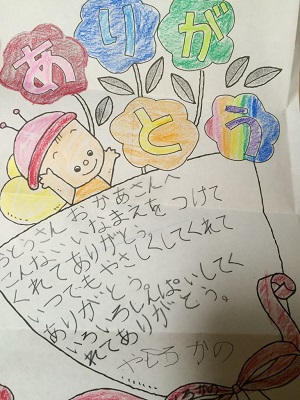 ありが
とう
おとうさん おかあさんへ
こんな いい なまえを つけて
くれて ありがとう。
いつでも やさしくしてくれて
ありがとう。
いろいろ しんぱいしてく
れて ありがとう。
やしろ かの